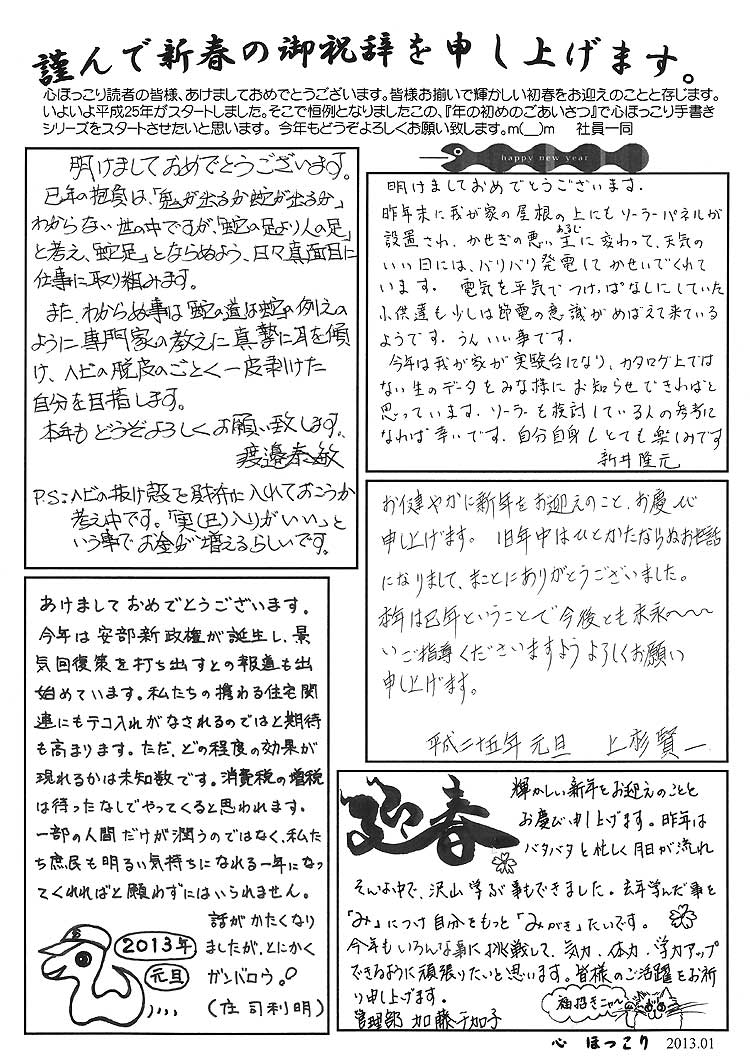 謹んで新春の御祝辞を申し上げます。
心ほっこり読者の皆様、あけましておめでとうございます。皆様お揃いで輝かしい初春をお迎えのことと存じます。
いよいよ平成25年がスタートしました。そこで恒例となりましたこの、『年の初めのごあいさつ』で心ほっこり手書き
シリーズをスタートさせたいと思います。 今年もどうぞよろしくお願い致します。m(__)m 社員一同
明けましておめでとうございます。
巳年の抱負は、「鬼が出るか蛇が出るか」
わからない世の中ですが、「蛇の足より人の足」
と考え、「蛇足」とならぬよう、日々真面目に
仕事に取り組みます。
また、わからぬ事は「蛇の道は蛇」の例えの
ように専門家の教えに真摯に耳を傾
け、ヘビの脱皮のごとく一皮剥けた
自分を目指します。
本年もどうぞよろしくお願い致します。
渡邉泰敏
P.S:ヘビの抜け殻を財布に入れておこうか
考え中です。「実(巳)入りがいい」と
いう事でお金が増えるらしいです。
happy new year
明けましておめでとうございます.
昨年末に我が家の屋根の上にもソーラーパネルが
設置され、かせぎの悪い主に変わって、天気の
あるじ
いい日には、バリバリ発電してかせいでくれて
います. 電気を平気でつけっぱなしにしていた
小供達も少しは節電の意識がめばえて来ている
ようです. うん いい事です.
今年は我が家が実験台になり、カタログ上では
ない生のデータをみな様にお知らせできればと
思っています. ソーラーを検討している人の参考に
なれば幸いです. 自分自身もとても楽しみです
新井隆元
お健やかに新年をお迎えのこと、お慶び
申し上げます。 旧年中はひとかたならぬお世話
になりまして、まことにありがとうございました。
本年は巳年ということで今後とも末永〜〜〜
いご指導くださいますようよろしくお願い
申し上げます。
平成二十五年 元旦 上杉賢一
あけましておめでとうございます。
今年は安部新政権が誕生し、景
気回復策を打ち出すとの報道も出
始めています。私たちの携わる住宅関
連にもテコ入れがなされるのではと期待
も高まります。ただ、どの程度の効果が
現れるかは未知数です。消費税の増税
は待ったなしでやってくると思われます。
一部の人間だけが潤うのではなく、私た
ち庶民も明るい気持ちになれる一年になっ
てくれればと願わずにはいられません。
話がかたくなり
ましたが、とにかく
ガンバロウ。
(庄司利明)
2013年
元旦
迎春
輝かしい新年をお迎えのことと
お慶び申し上げます。昨年は
バタバタと忙しく月日が流れ
そんな中で、沢山学ぶ事もできました。去年学んだ事を
「み」につけ自分をもっと「みがき」たいです。
今年もいろんな事に挑戦して、気力、体力、学力アップ
できるように頑張りたいと思います。皆様のご活躍をお祈
り申し上げます。
管理部 加藤千加子
福招きニャ〜
心 ほっこり 2013.01